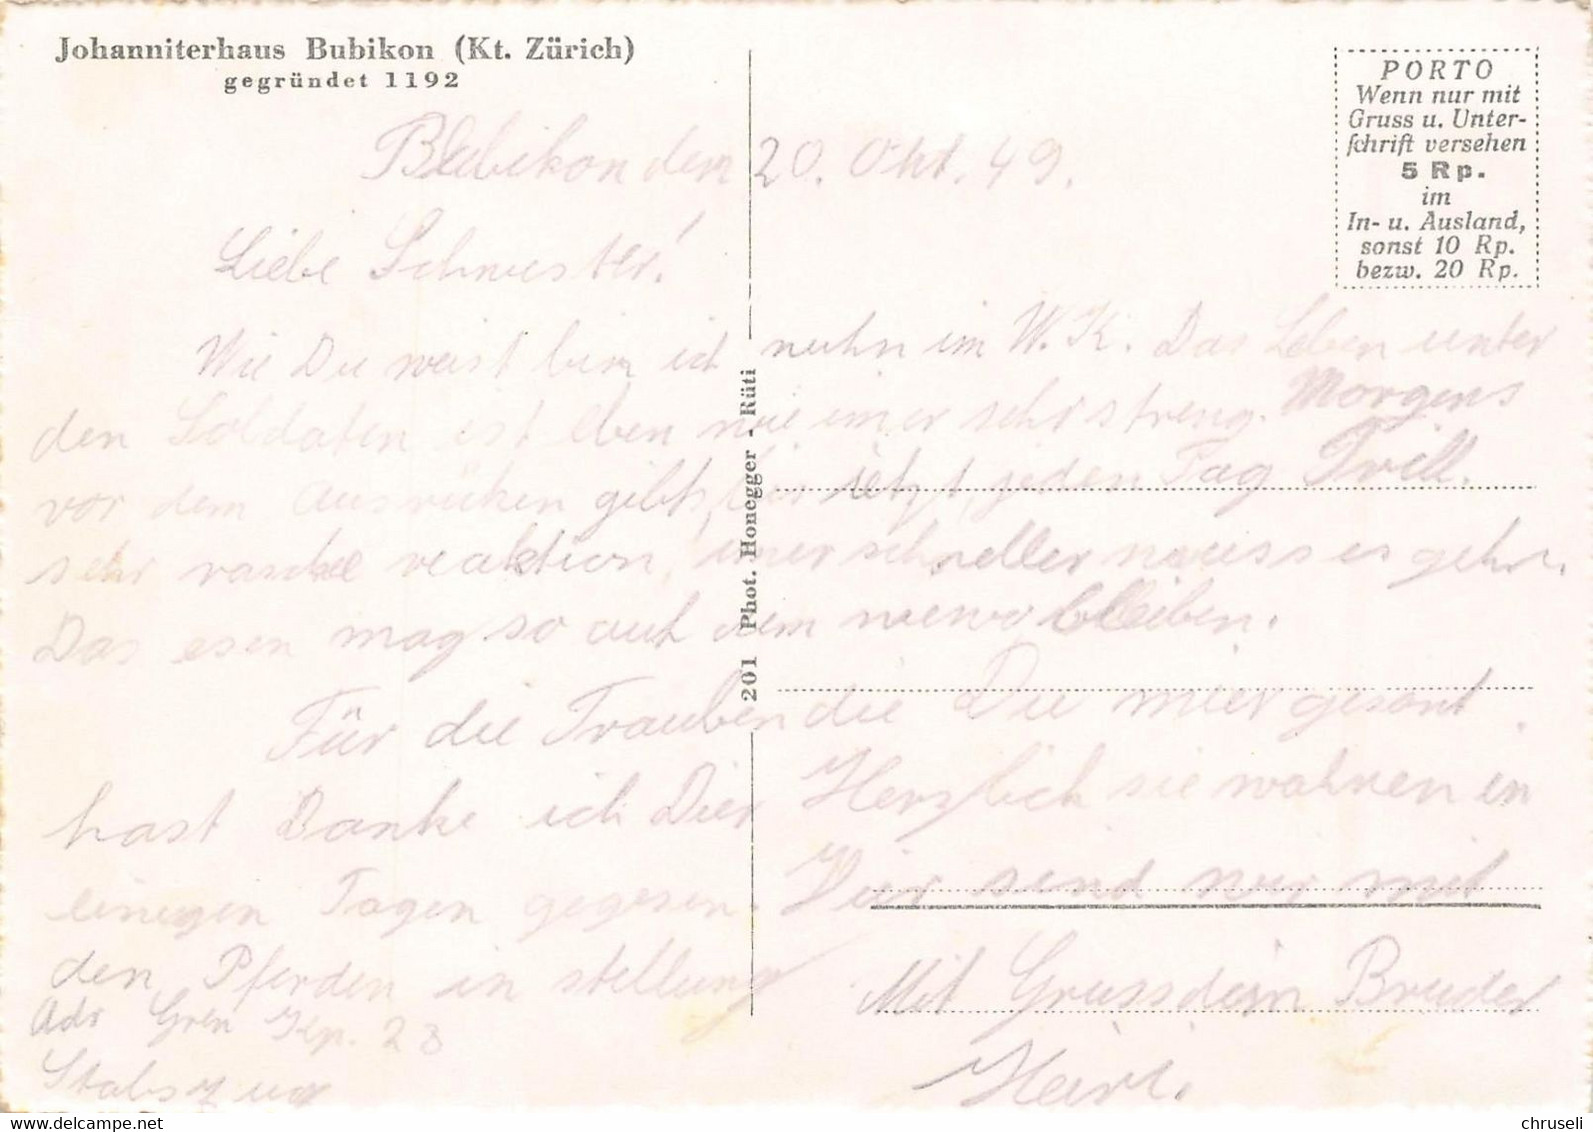 Johanniterhaus Bubikon (Kt. Zürich)
gegründet 1192
PORTO
Wenn nur mit
Gruss u. Unter-
schrift versehen
5 Rp.
im
In- u. Ausland,
sonst 10 Rp.
bezw. 20 Rp.
201 Phot. Honegger - Rüti
Bubikon den 20. Okt. 49.
Liebe Schwester!
Wie Du weist bin ich nuhn im W.K. Das Leben unter
den Soldaten ist eben wie imer sehr streng. Morgens
vor dem ausrüken gibts bis jetzt jeden Tag Trill.
sehr rasche reaktion, imer schneller mueiss es gehn.
Das esen mag so auf dem niewo bleiben.
Für die Trauben die Du mier gesant
hast Danke ich Dier Herzlich sie wahren in
einigen Tagen gegesen. Hier send wir mit
den Pferden in stellung
Mit Gruss dein Bruder
Heiri.
Adr Gren Kp. 28
Stabszug